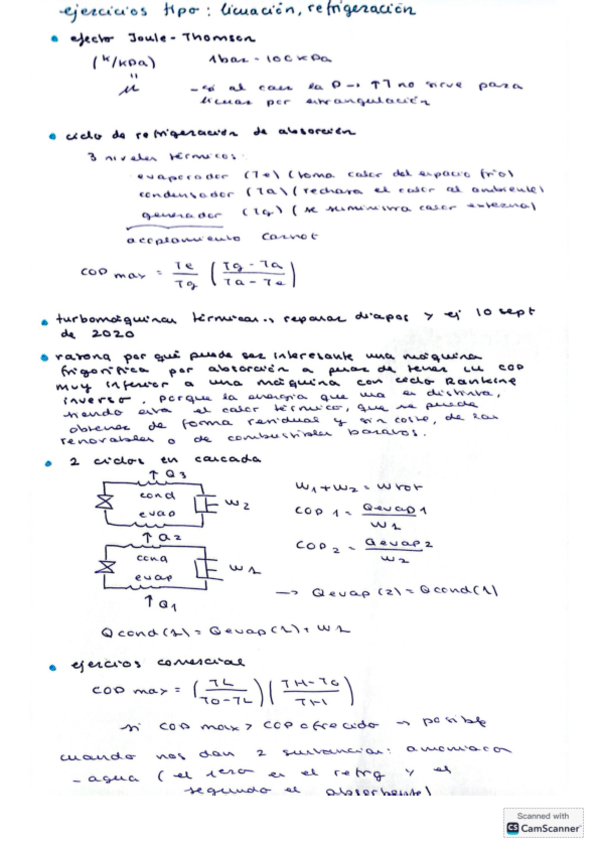 ejercicios tipo: licuación, refrigeración
• efecto Joule-Thomson
(K/kPa) 1bar - 100 kPa
"
μ - si al caer la P → ↑T no sirve para
licuar por estrangulación
• ciclo de refrigeración de absorción
3 niveles térmicos:
evaporador (Te) (toma calor del espacio frío)
condensador (Ta) (rechaza el calor al ambiente)
generador (Tg) (se suministra calor externa)
acoplamiento Carnot
COP max = Te/Tg (Tg - Ta / Ta - Te)
• turbomáquinas térmicas.. repasar diapos y ej 10 sept
de 2020
• razona por qué puede ser interesante una máquina
frigorífica por absorción a pesar de tener su COP
muy inferior a una máquina con ciclo Rankine
inverso. porque la energía que usa es distinta,
siendo esta el calor térmico, que se puede
obtener de forma residual y sin coste, de las
renovables o de combustibles baratos.
• 2 ciclos en cascada
↑ Q3
cond
evap W2
↑ Q2
cond
evap W1
↑ Q1
W1 + W2 = Wtot
COP 1 = Qevap1 / W1
COP2 = Qevap2 / W2
→ Qevap (2) = Qcond (1)
Qcond (1) = Qevap (1) + W1
• ejercicios comercial
COP max = (TL / TO - TL) (TH - TO / TH)
si COP max > COP ofrecido → posible
cuando nos dan 2 sustancias: amoniaco
- agua ( el 1ero es el refrig y el
segundo el absorbente)
Scanned with
CS CamScanner